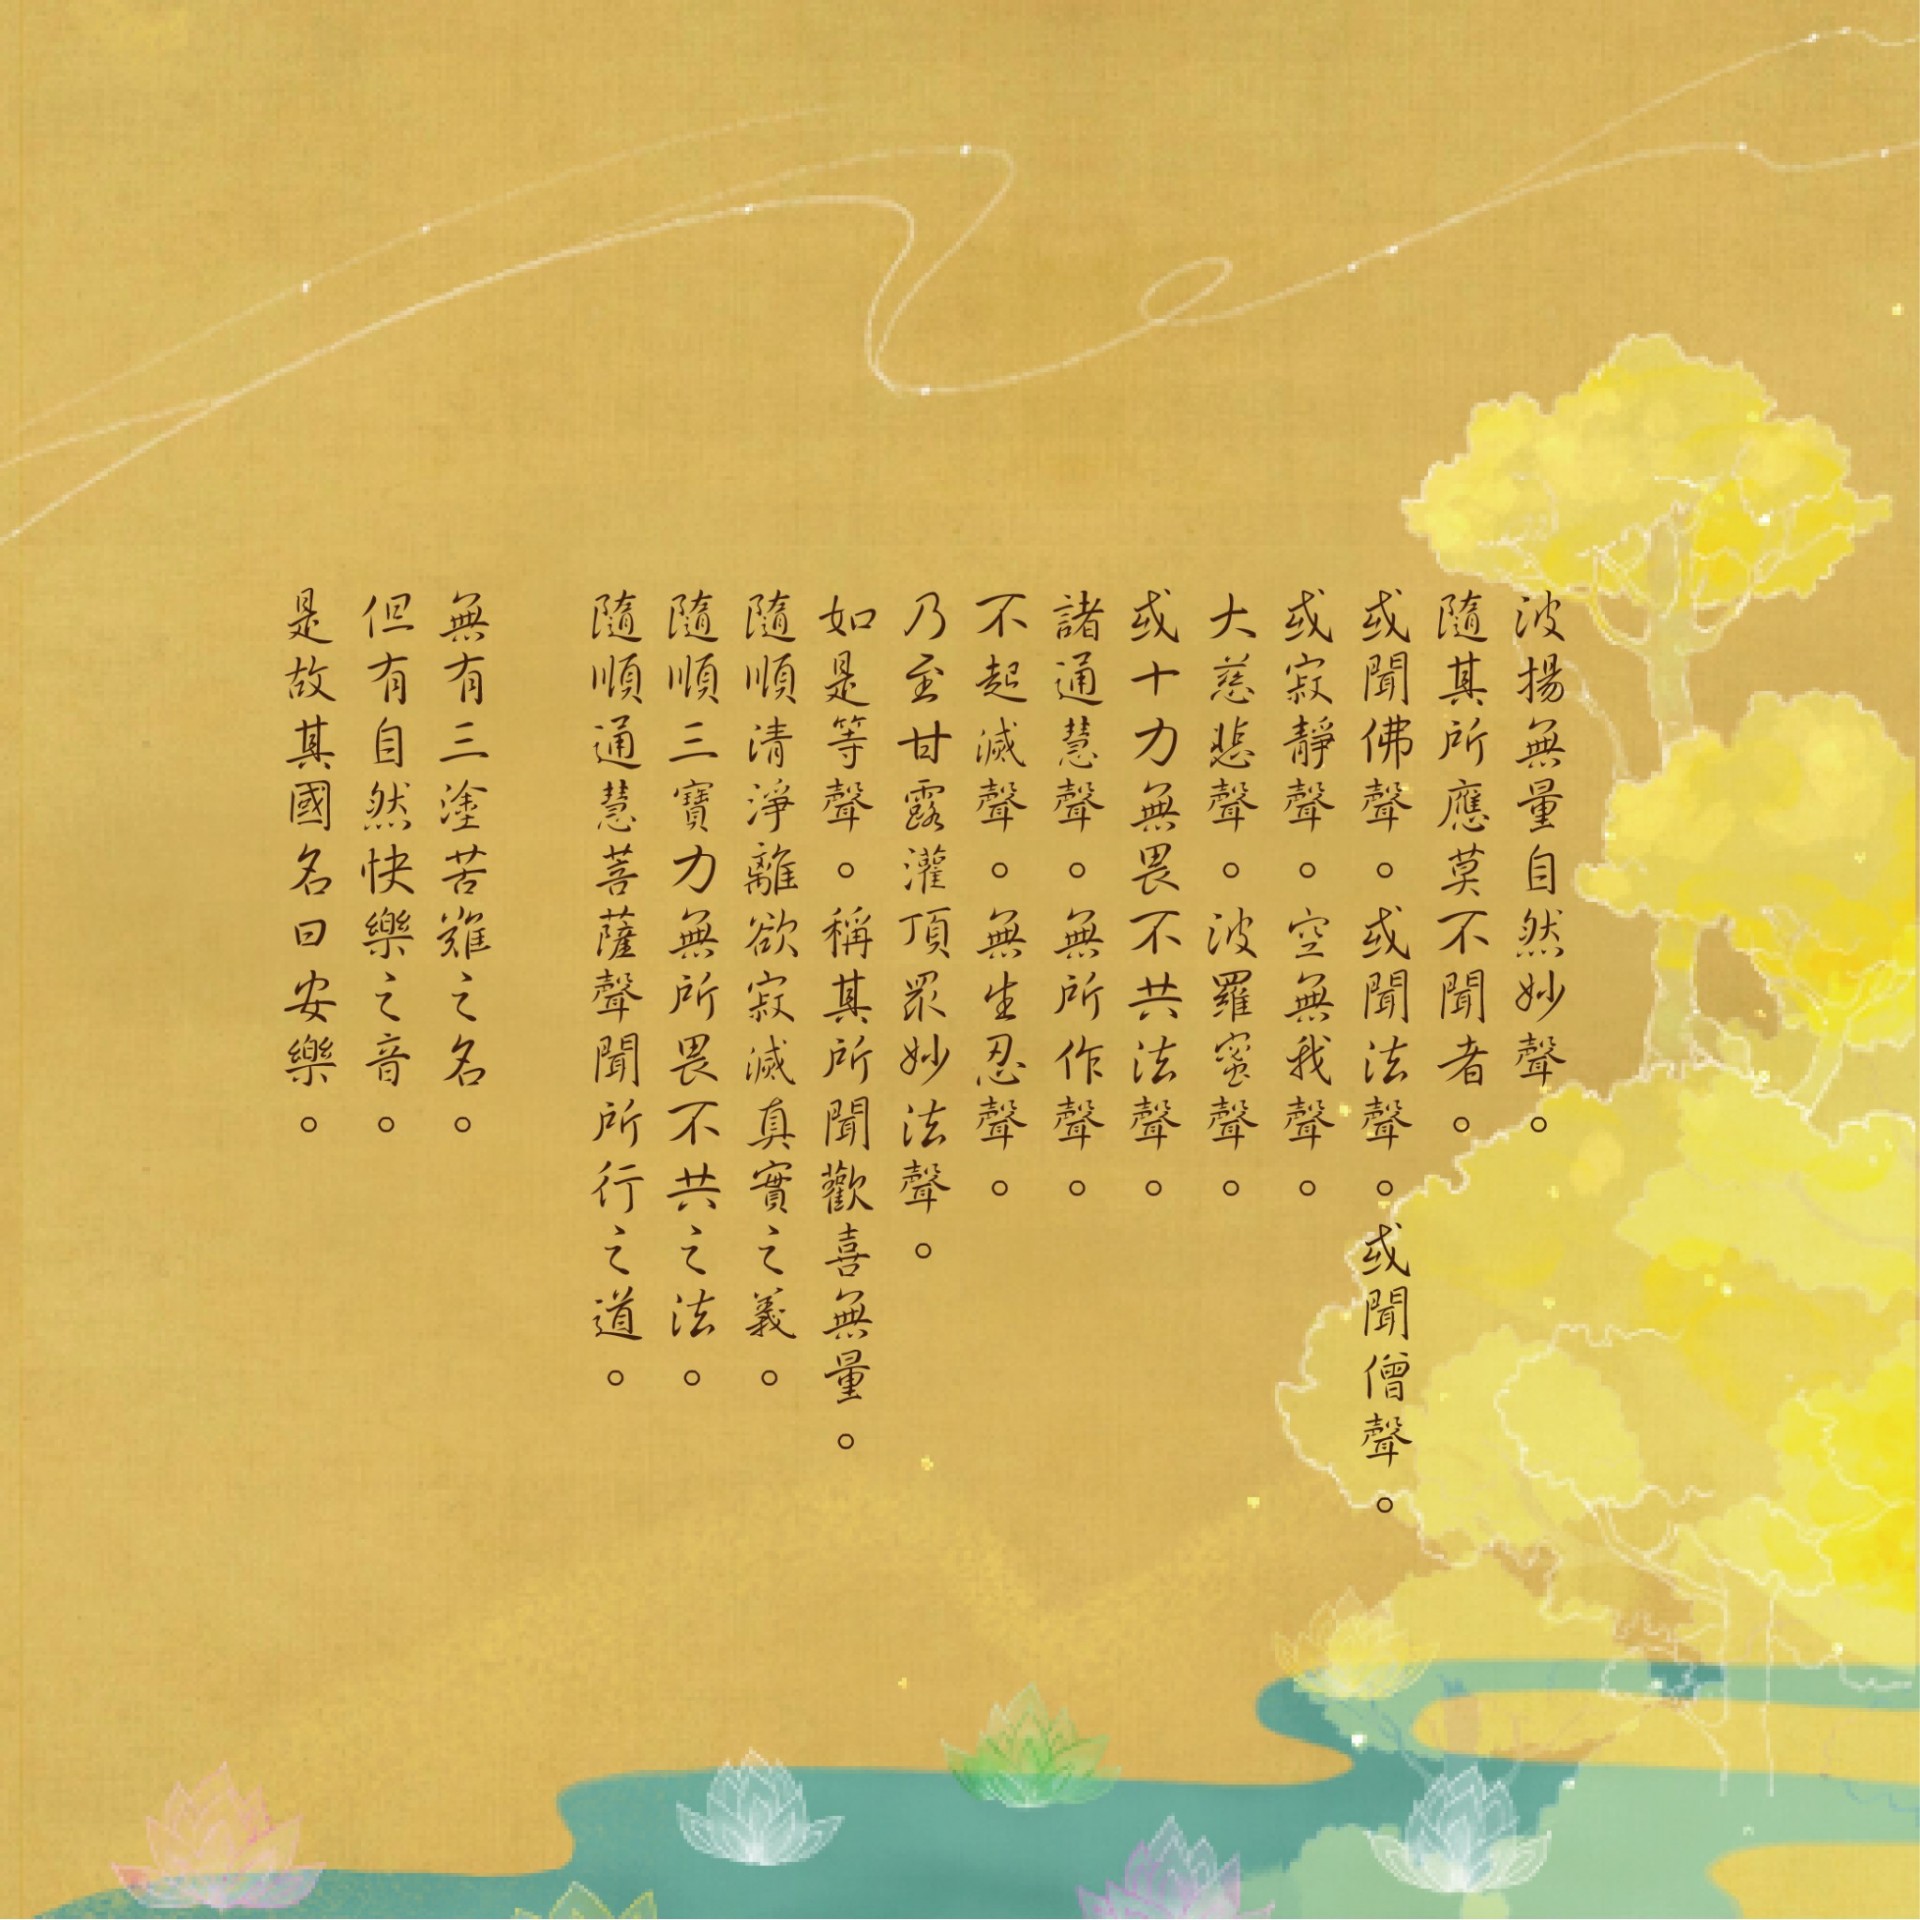 波揚無量自然妙聲。
隨其所應莫不聞者。
或聞佛聲。或聞法聲。或聞僧聲。
或寂靜聲。空無我聲。
大慈悲聲。波羅蜜聲。
或十力無畏不共法聲。
諸通慧聲。無所作聲。
不起滅聲。無生忍聲。
乃至甘露灌頂眾妙法聲。
如是等聲。稱其所聞歡喜無量。
隨順清淨離欲寂滅真實之義。
隨順三寶力無所畏不共之法。
隨順通慧菩薩聲聞所行之道。
無有三塗苦難之名。
但有自然快樂之音。
是故其國名曰安樂。